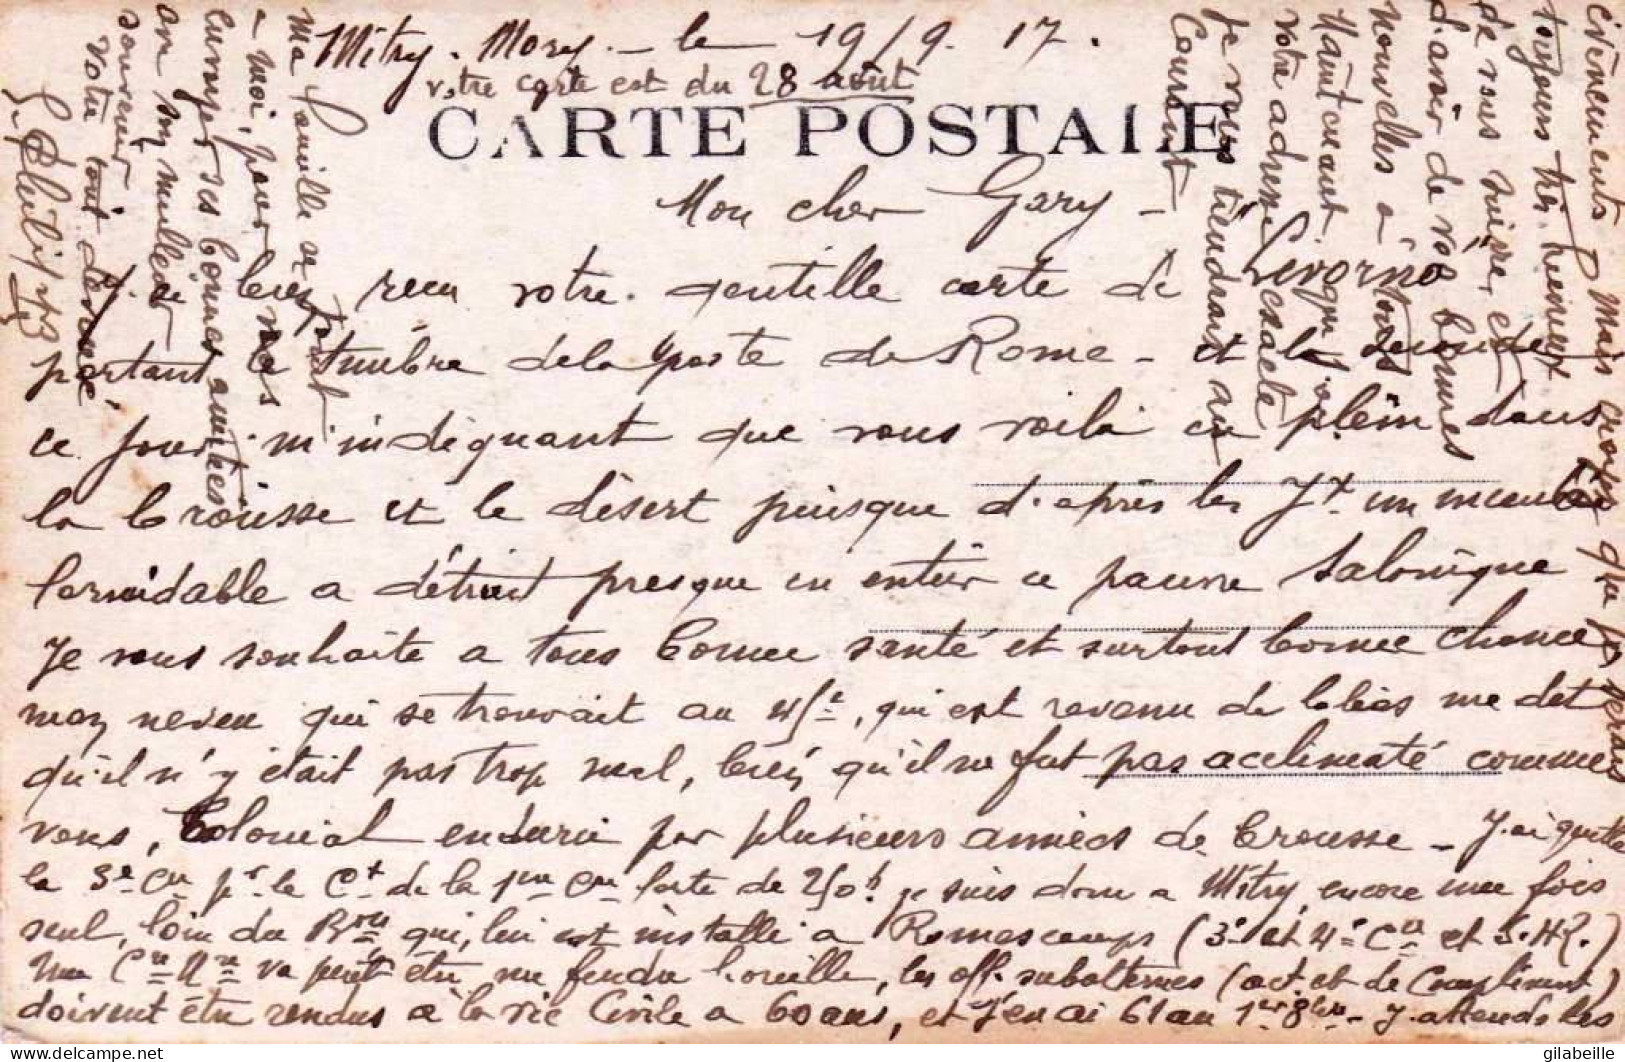 Mitry-Mory - le 19/9. 17.
votre carte est du 28 août
CARTE POSTALE
Mon cher Gary -
J'ai bien reçu votre gentille carte de "Livorno"
portant le timbre de la poste de Rome - et la seconde
ce jour m'indiquant que vous voilà en plein dans
la brousse et le désert puisque d'après les Jx un incendie
formidable a détruit presque en entier ce pauvre Salonique
Je vous souhaite a tous bonne santé et surtout bonne chance
mon neveu qui se trouvait au 45e, qui est revenu de là bas me dit
qu'il n'y était pas trop mal, bien qu'il ne fut pas acclimaté comme
vous, Colonial endurci par plusieurs années de brousse - J'ai quitté
la 3e Cie pr le Ct de la 1re Cie forte de 250 h. je suis donc a Mitry, encore une fois
seul, loin du Bon qui, lui est installé a Romescamps (3e et 4e Cie et S.H.R.)
Ma Cie va peut être me fendre l'oreille, les off. subalternes (act. et de Complément)
doivent être rendus à la vie Civile a 60 ans, et j'en ai 61 au 1er 8bre - J'attends les
événements, mais croyez que je serais
toujours très heureux
de vous suivre, et
d'avoir de vos bonnes
nouvelles à tous
Maintenant que j'ai
votre adresse exacte
Je vous tiendrais au
Courant
Ma famille se joint
a moi, pour vous
envoyer ses bonnes amitiés
avec son meilleur
souvenir
Votre tout dévoué,
gilabeille